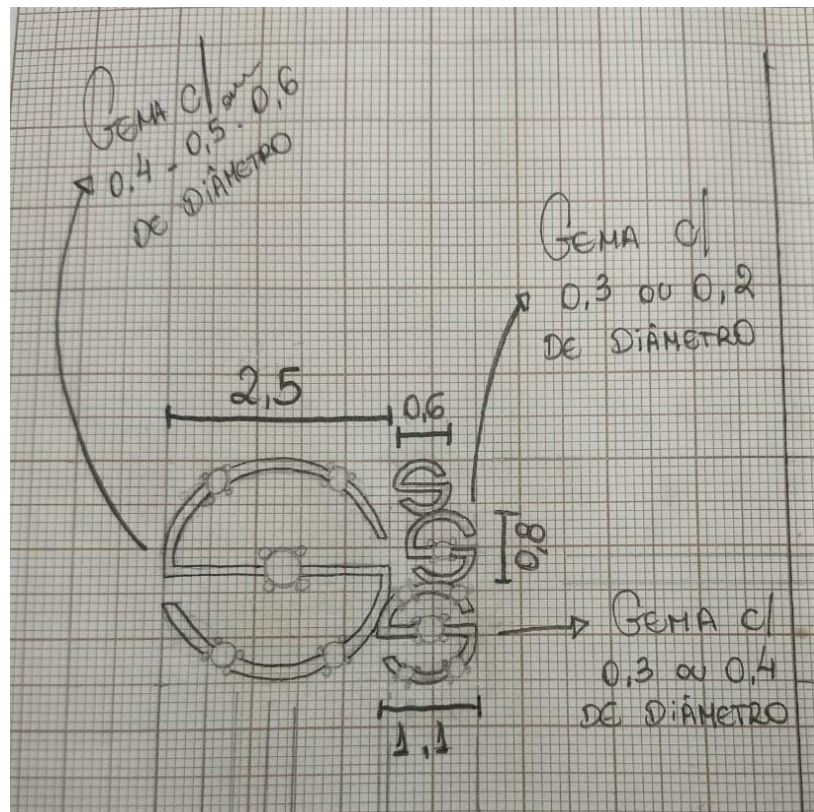 GEMA C/ ou
0,4 - 0,5 - 0,6
DE DIÂMETRO
GEMA C/
0,3 OU 0,2
DE DIÂMETRO
2,5
0,6
0,8
GEMA C/
0,3 OU 0,4
DE DIÂMETRO
1,1